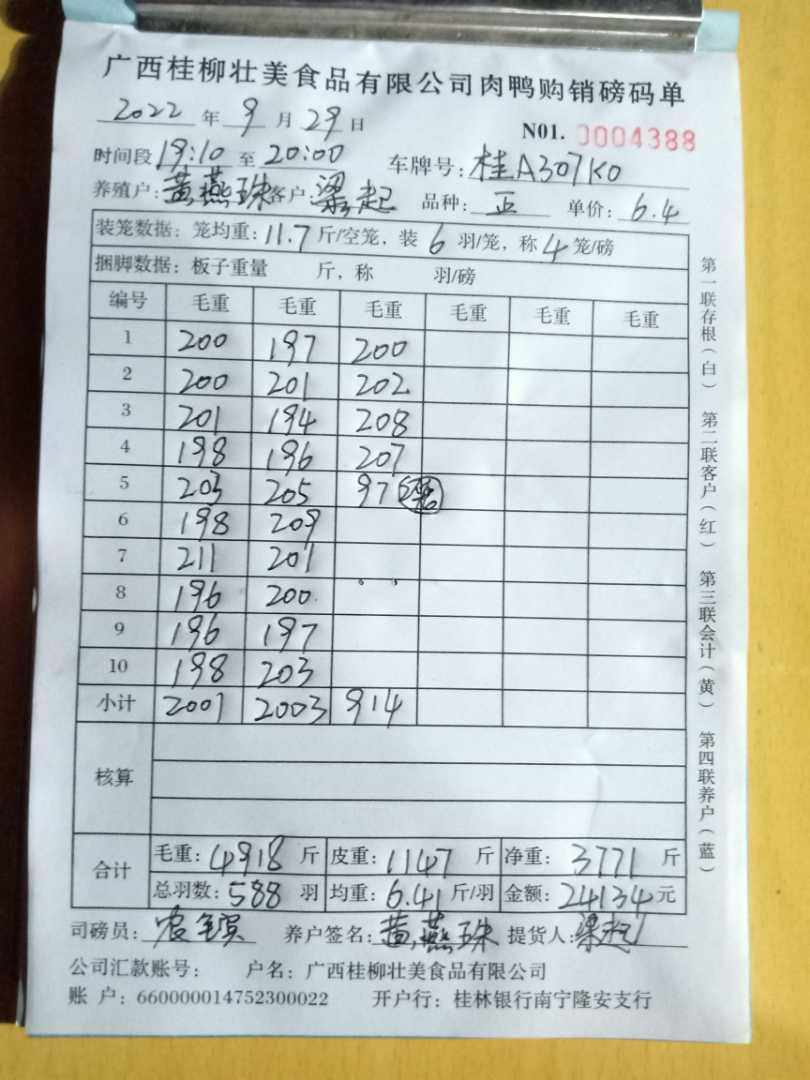 广西桂柳壮美食品有限公司肉鸭购销磅码单
2022 年 9 月 29 日 N01. 0004388
时间段 19:10 至 20:00 车牌号: 桂A307K0
养殖户: 黄燕珠 客户: 梁起 品种: 正 单价: 6.4
装笼数据: 笼均重: 11.7 斤/空笼, 装 6 羽/笼, 称 4 笼/磅
捆脚数据: 板子重量 斤, 称 羽/磅
编号 毛重 毛重 毛重 毛重 毛重 毛重
1 200 197 200
2 200 201 202
3 201 194 208
4 198 196 207
5 203 205 97
6 198 209
7 211 201
8 196 200
9 196 197
10 198 203
小计 2001 2003 914
核算
合计 毛重: 4918 斤 皮重: 1147 斤 净重: 3771 斤
总羽数: 588 羽 均重: 6.41 斤/羽 金额: 24134 元
司磅员: 养户签名: 黄燕珠 提货人: 梁起
公司汇款账号: 户名: 广西桂柳壮美食品有限公司
账 户: 660000014752300022 开户行: 桂林银行南宁隆安支行
第一联存根(白) 第二联客户(红) 第三联会计(黄) 第四联养户(蓝)